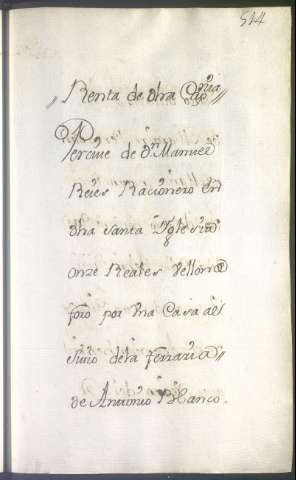 544
„ Renta de dha Capnia „
Percive de Dn Manuel
Reies Racionero En
dha santa Yglesia
onze Reales Vellon de
foro por Vna Casa al
sitio dela ferraria „
de Antonio Blanco.